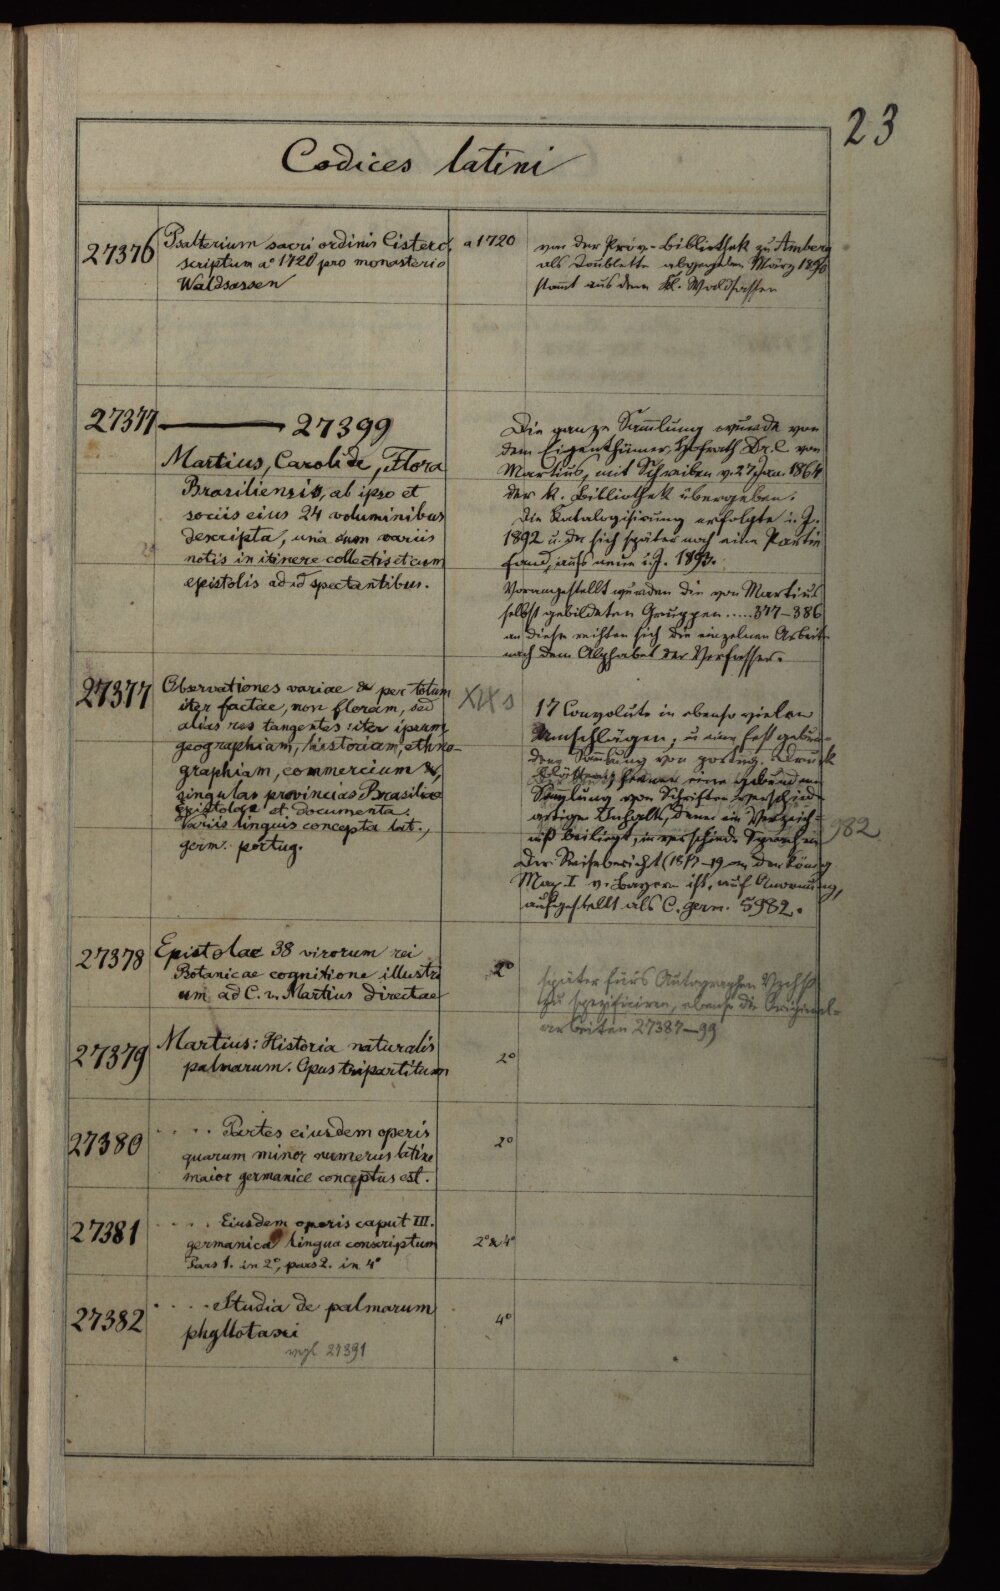 23
Codices latini
27376 Psalterium sacri ordinis Cisterc. a 1720 von der Prov.-Bibliothek zu Amberg
scriptum aº 1720 pro monasterio als Doublette abgegeben März 1890
Waldsassen stammt aus dem Kl. Waldsassen
27377 — 27399
Martius, Caroli de, Flora
Brasiliensis, ab ipso et
sociis eius 24 voluminibus
descripta, una cum variis
notis in itinere collectis et cum
epistolis ad id spectantibus.
Die ganze Sammlung wurde von
dem Eigenthümer, Hofrath Dr. C. von
Martius, mit Schreiben v. 27 Jan. 1864
der k. Bibliothek übergeben.
Die Katalogisirung erfolgte i. J.
1892 u. da sich später noch eine Partie
fand, aufs neue i. J. 1893.
Vorangestellt wurden die von Martius
selbst gebildeten Gruppen ..... 377–386
an diese reihten sich die einzelnen Arbeiten
nach dem Alphabet der Verfasser.
27377 Observationes variae & per totum XIX s
iter factae, non floram, sed
alias res tangentes: iter ipsum
geographiam, historiam, ethno-
graphiam, commercium &,
singulas provincias Brasiliae
epistolae et documenta.
Variis linguis concepta lat.,
germ. portug.
17 Convolute in ebenso vielen
Umschlägen, u. eine fest gebun-
dene Sammlung von portug. Druck
blättern; ferner eine gebundene
Sammlung von Schriften verschied-
artigen Inhalts, denen ein Verzeich-
niß beiliegt, in verschied. Sprachen
982
Der Reisebericht (1817–19 an den König
Max I v. Bayern ist, auf Anordnung,
aufgestellt als C. germ. 5982.
27378 Epistolae 38 virorum rei 2º
Botanicae cognitione illustri
um ad C. v. Martius directae
später fürs Autographen
zu spezificiren, ebenso die Original-
arbeiten 27387–99
27379 Martius: Historia naturalis 2º
palmarum. Opus tripartitum
27380 .... Partes eiusdem operis 2º
quarum minor numerus latine
maior germanice conceptus est.
27381 .... Eiusdem operis caput III. 2º & 4º
germanica lingua conscriptum
Pars 1. in 2º, pars 2. in 4º
27382 .... Studia de palmarum 4º
phyllotaxi
vgl. 27391